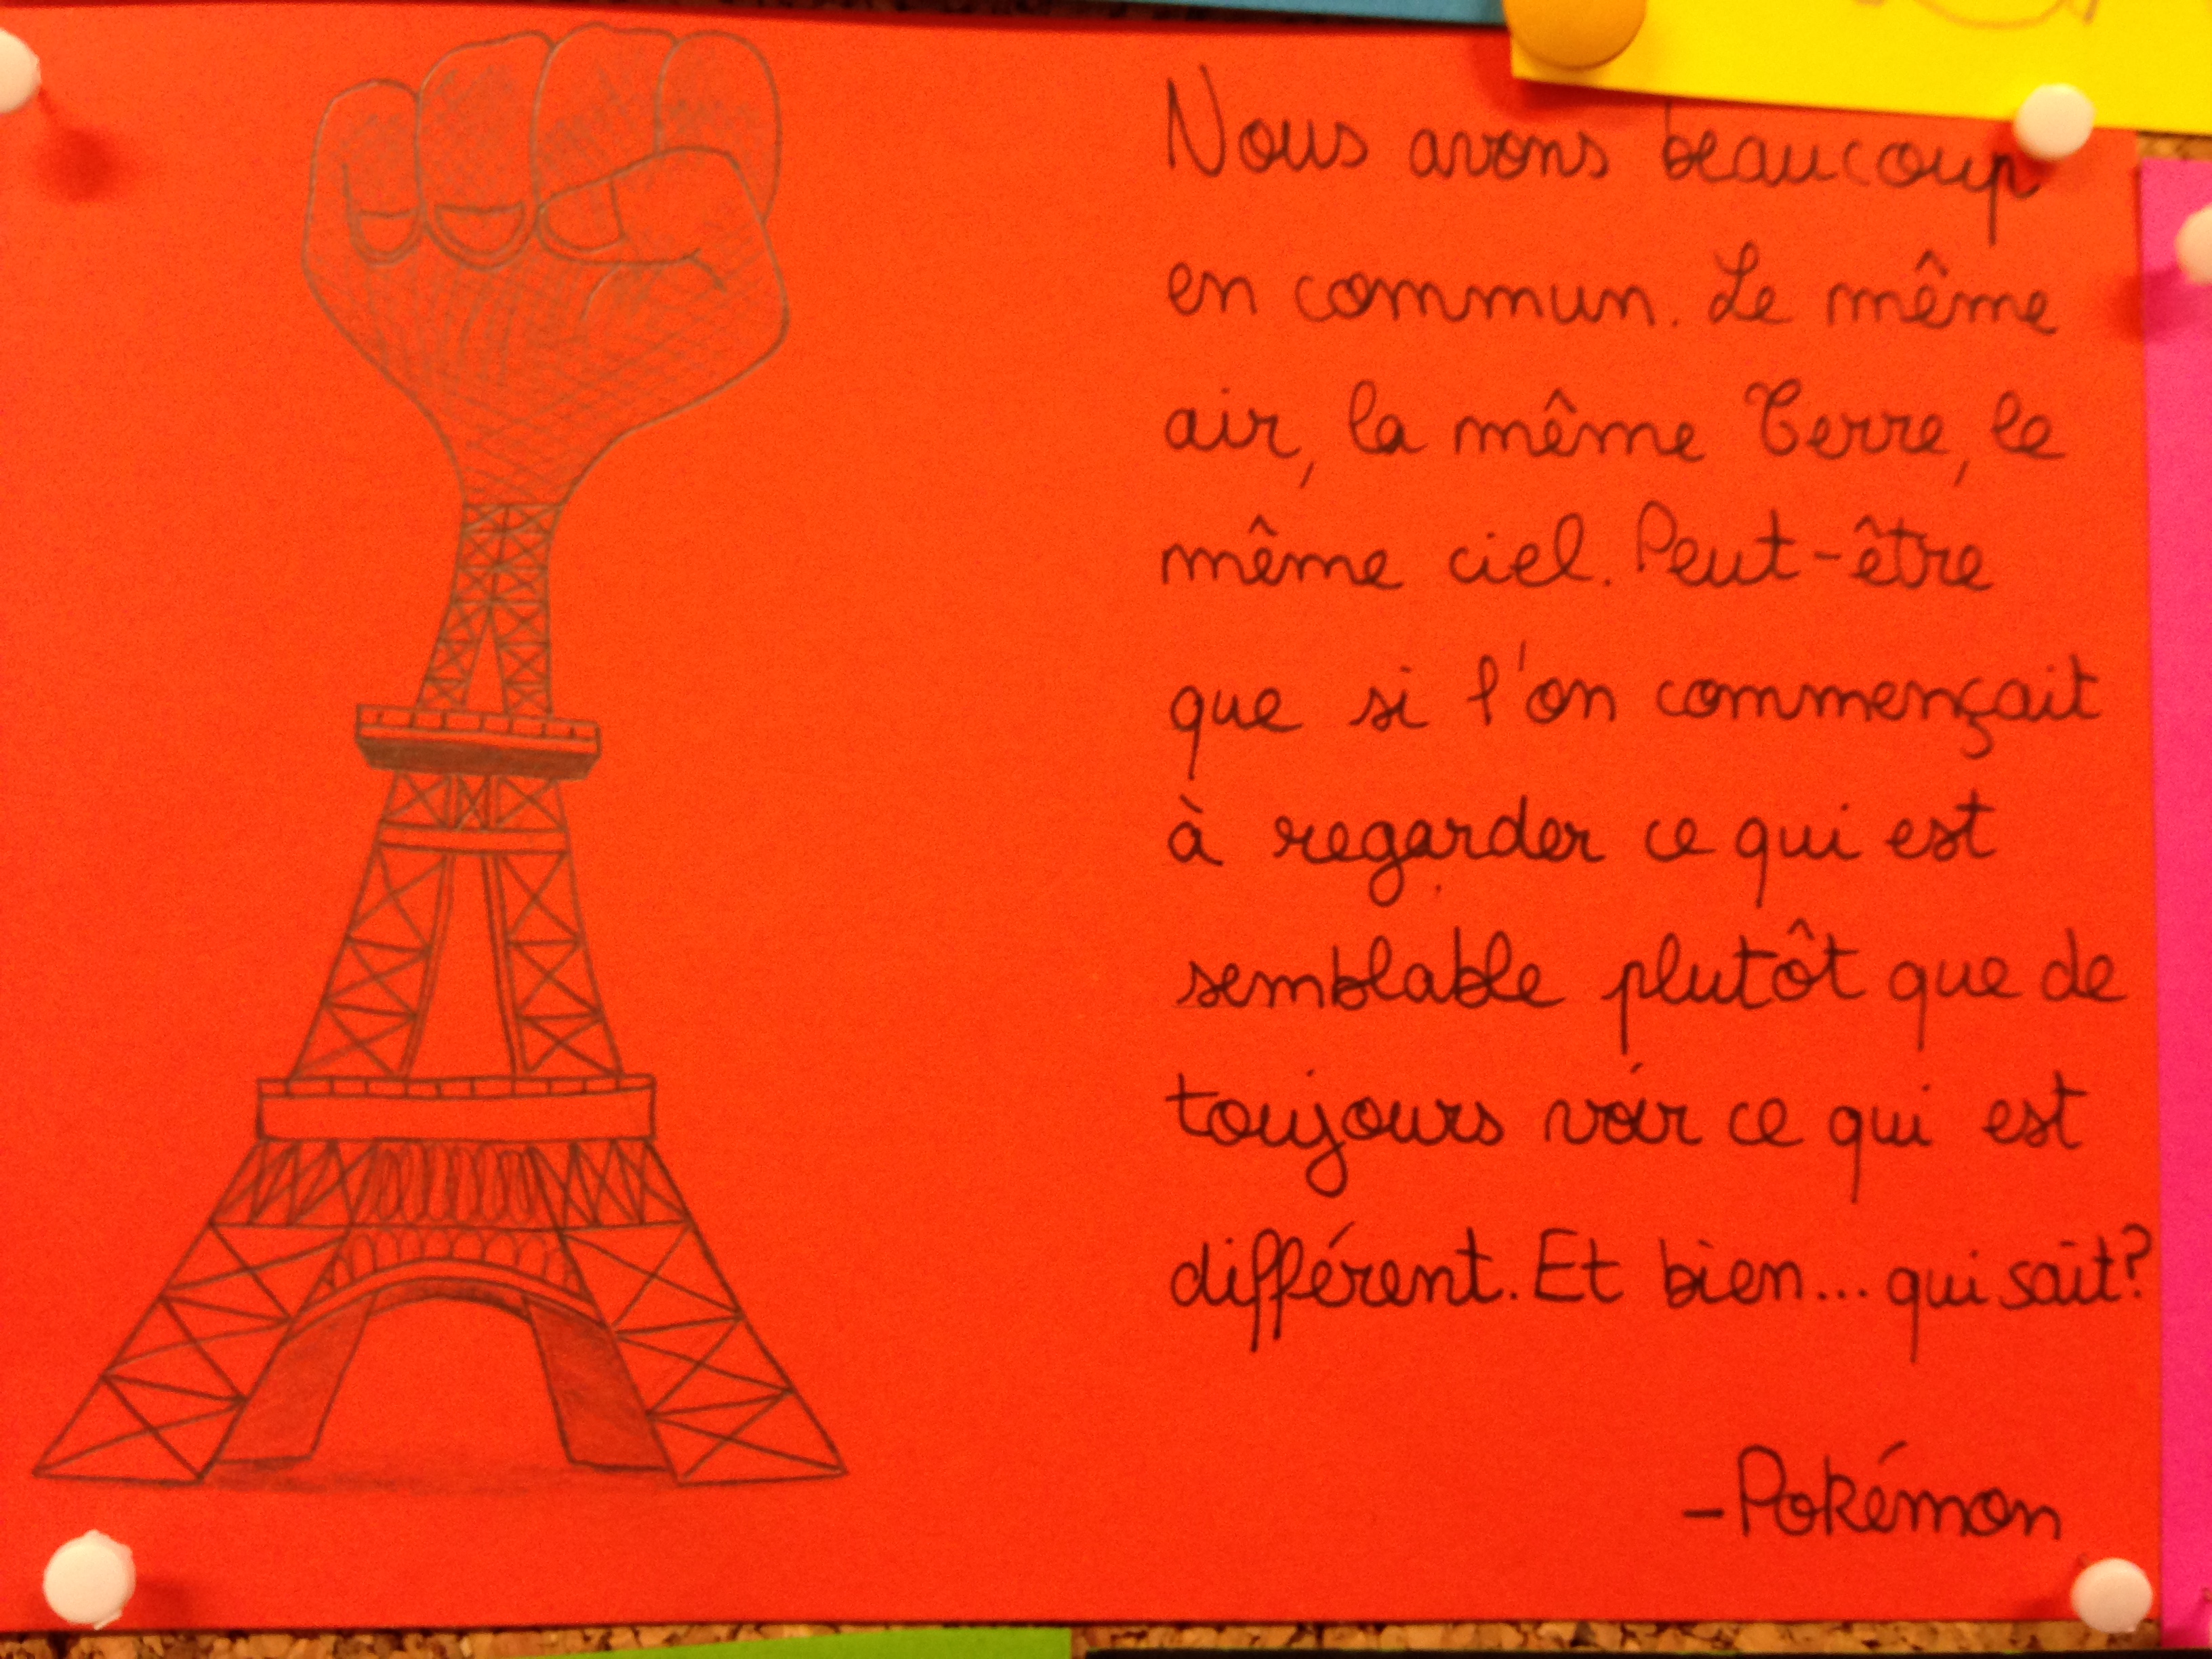 Nous avons beaucoup
en commun. Le même
air, la même Terre, le
même ciel. Peut-être
que si l'on commençait
à regarder ce qui est
semblable plutôt que de
toujours voir ce qui est
différent. Et bien... qui sait?
-Pokémon